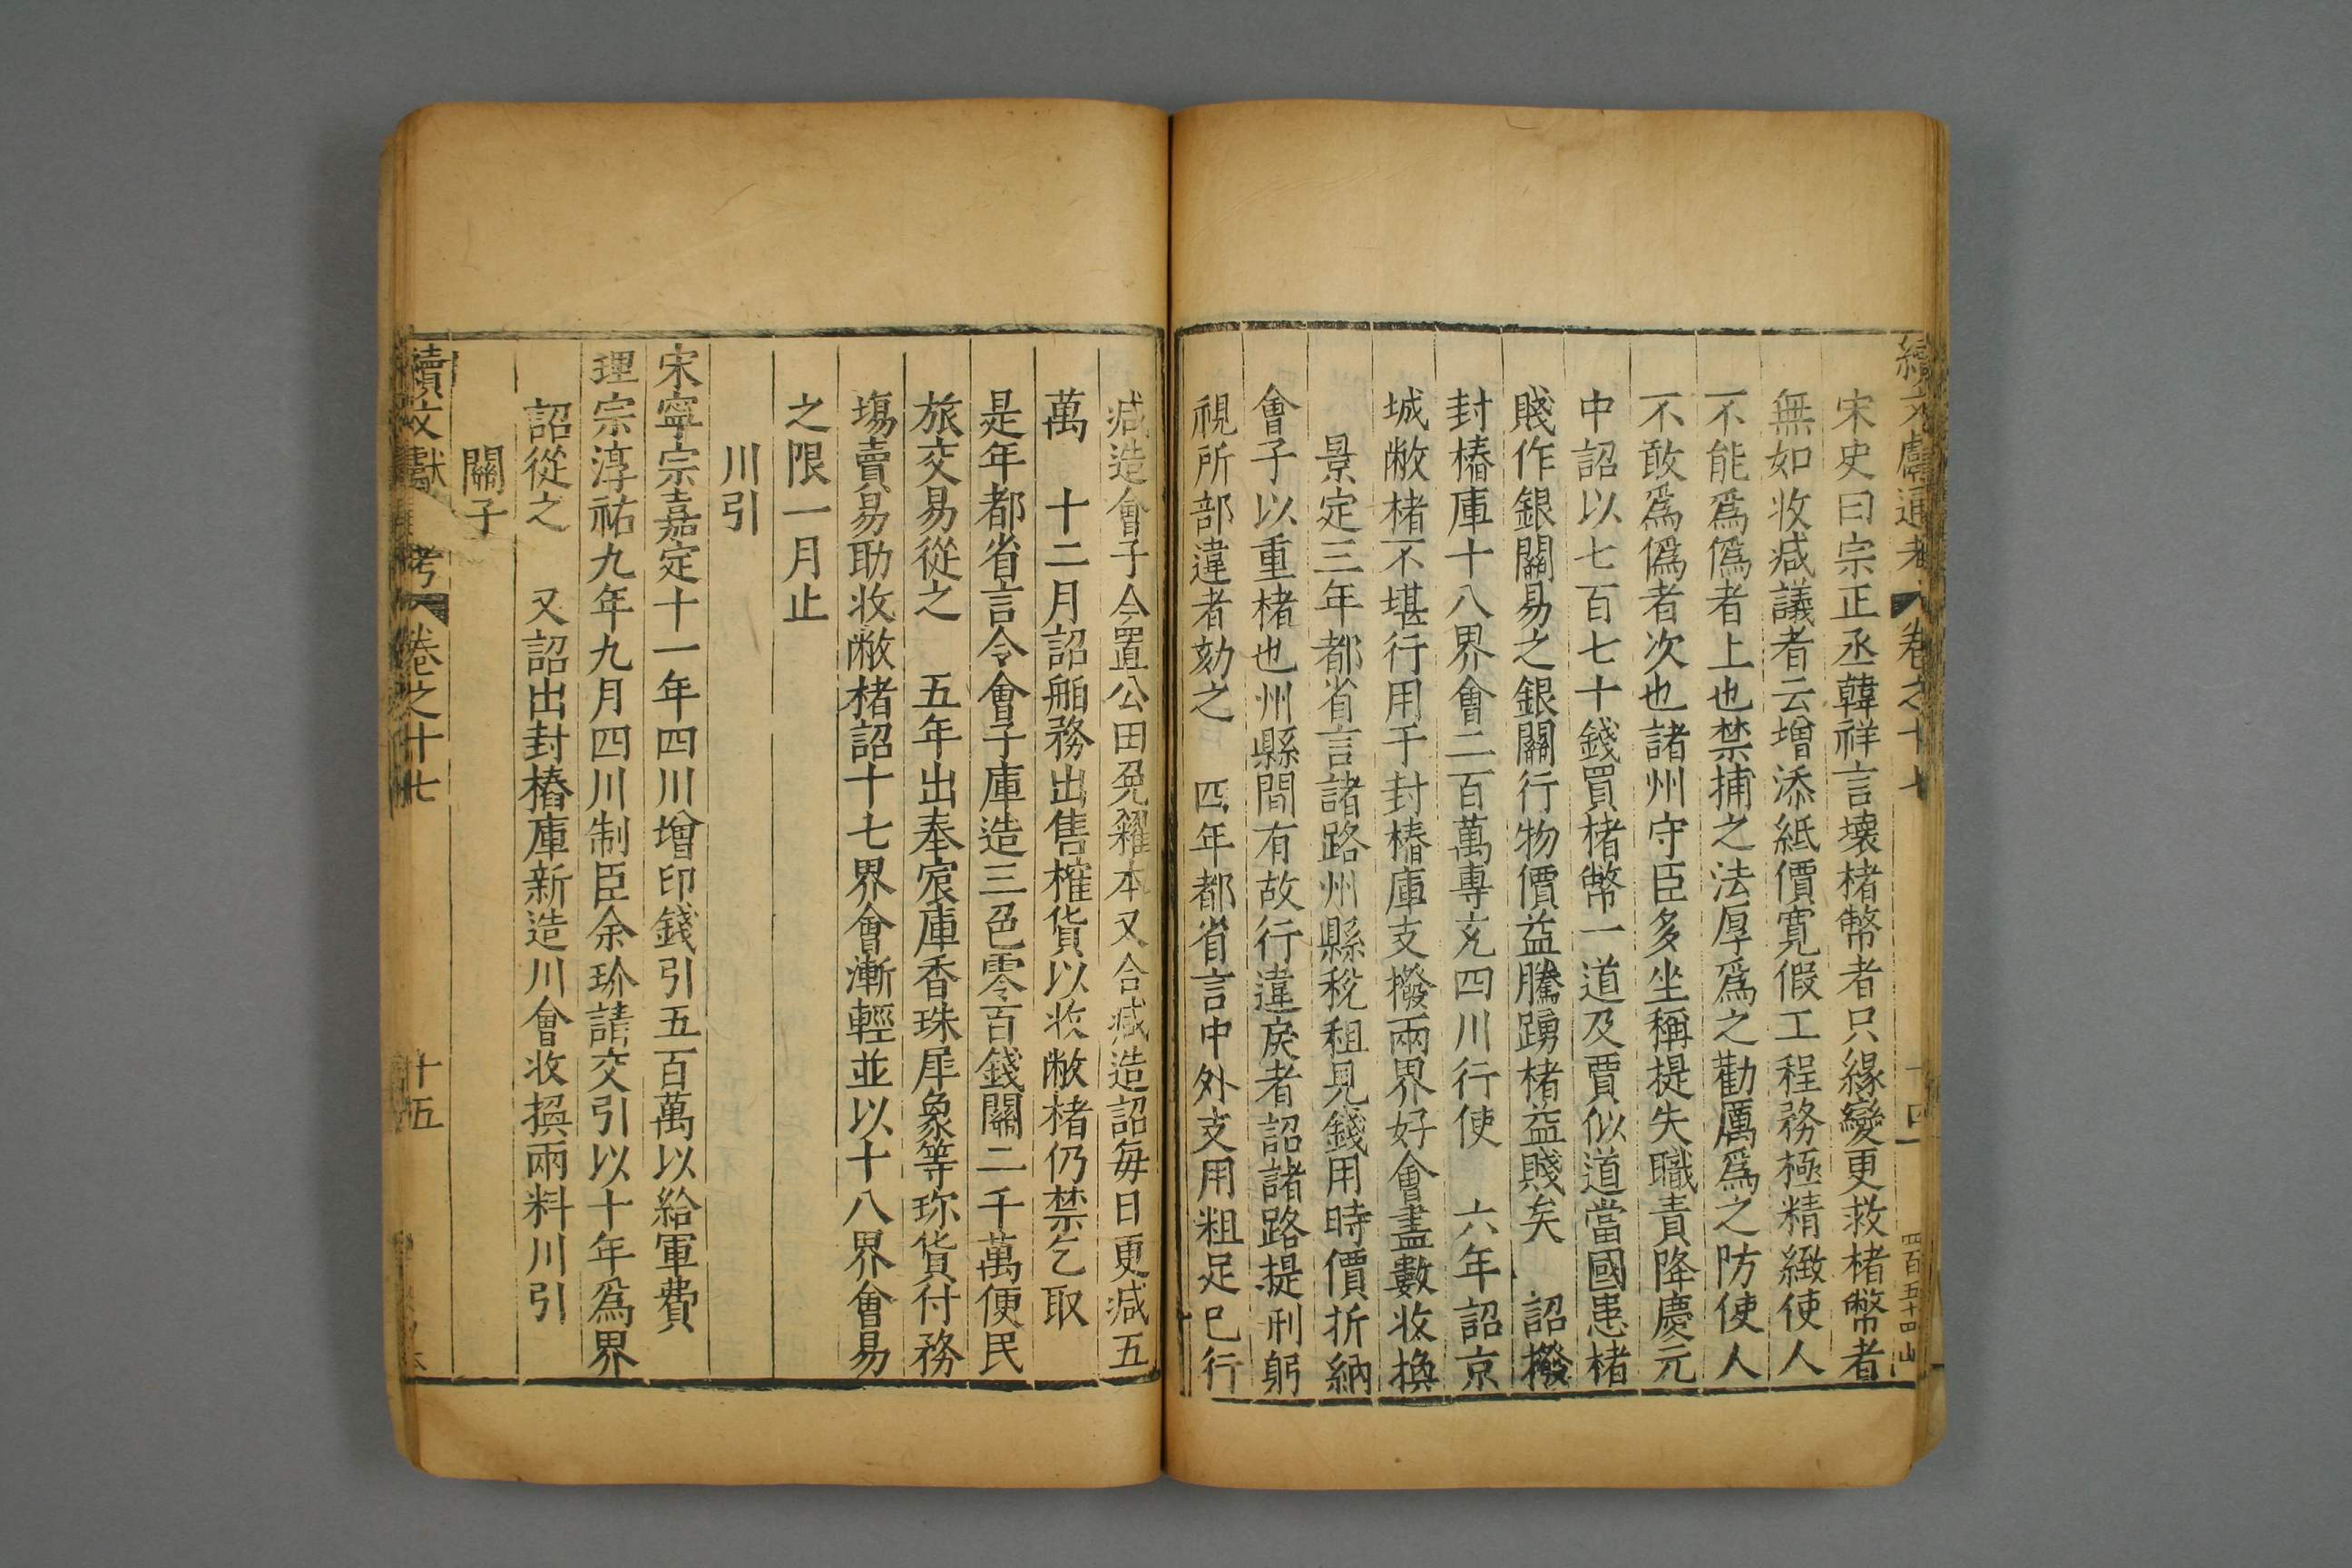 續文獻通考 卷之十七 十四 四百五十四 山
宋史曰宗正丞韓祥言壞楮幣者只緣變更救楮幣者
無如收减議者云增添紙價寬假工程務極精緻使人
不能爲僞者上也禁捕之法厚爲之勸厲爲之防使人
不敢爲僞者次也諸州守臣多坐稱提失職責降慶元
中詔以七百七十錢買楮幣一道及賈似道當國患楮
賤作銀關易之銀關行物價益騰踴楮益賤矣 詔撥
封樁庫十八界會二百萬專充四川行使 六年詔京
城敝楮不堪行用于封樁庫支撥兩界好會盡數收換
景定三年都省言諸路州縣稅租見錢用時價折納
會子以重楮也州縣間有故行違戾者詔諸路提刑躬
視所部違者劾之 四年都省言中外支用粗足已行
减造會子今置公田免糴本又合减造詔每日更减五
萬 十二月詔舶務出售榷貨以收敝楮仍禁乞取
是年都省言令會子庫造三色零百錢關二千萬便民
旅交易從之 五年出奉宸庫香珠犀象等珎貨付務
塲賣易助收敝楮詔十七界會漸輕並以十八界會易
之限一月止
川引
宋寧宗嘉定十一年四川增印錢引五百萬以給軍費
理宗淳祐九年九月四川制臣余玠請交引以十年爲界
詔從之 又詔出封樁庫新造川會收換兩料川引
關子
續文獻通考 卷之十七 十五